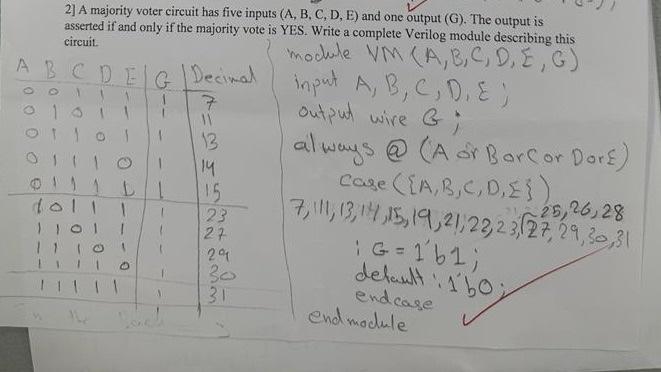 2] A majority voter circuit has five inputs (A, B, C, D, E) and one output (G). The output is
asserted if and only if the majority vote is YES. Write a complete Verilog module describing this
circuit.
module VM (A,B,C,D,E,G)
input A,B,C,D,E;
output wire G;
always @ (A or B or C or D or E)
case({A,B,C,D,E})
25,26,28
7,11,13,14,15,19,21,22,23,27,29,30,31
: G = 1'b1;
default : 1'b0;
endcase
endmodule
A B C D E G Decimal
0 0 1 1 1 1 7
0 1 0 1 1 1 11
0 1 1 0 1 1 13
0 1 1 1 0 1 14
0 1 1 1 1 1 15
1 0 1 1 1 1 23
1 1 0 1 1 1 27
1 1 1 0 1 1 29
1 1 1 1 0 1 30
1 1 1 1 1 1 31